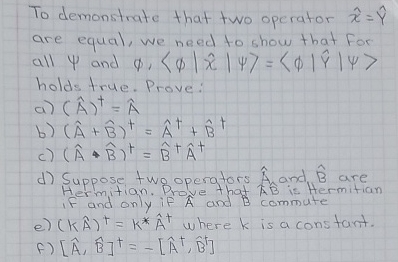 To demonstrate that two operator x̂ = Ŷ
are equal, we need to show that for
all ψ and φ, <φ|x̂|ψ> = <φ|Ŷ|ψ>
holds true. Prove:
a) (Â)† = Â
b) (Â + B̂)† = Â† + B̂†
c) (Â • B̂)† = B̂† Â†
d) Suppose two operators Â and B̂ are
Hermitian. Prove that ÂB̂ is Hermitian
if and only if Â and B̂ commute
e) (kÂ)† = k* Â† where k is a constant.
f) [Â, B̂]† = -[Â†, B̂†]